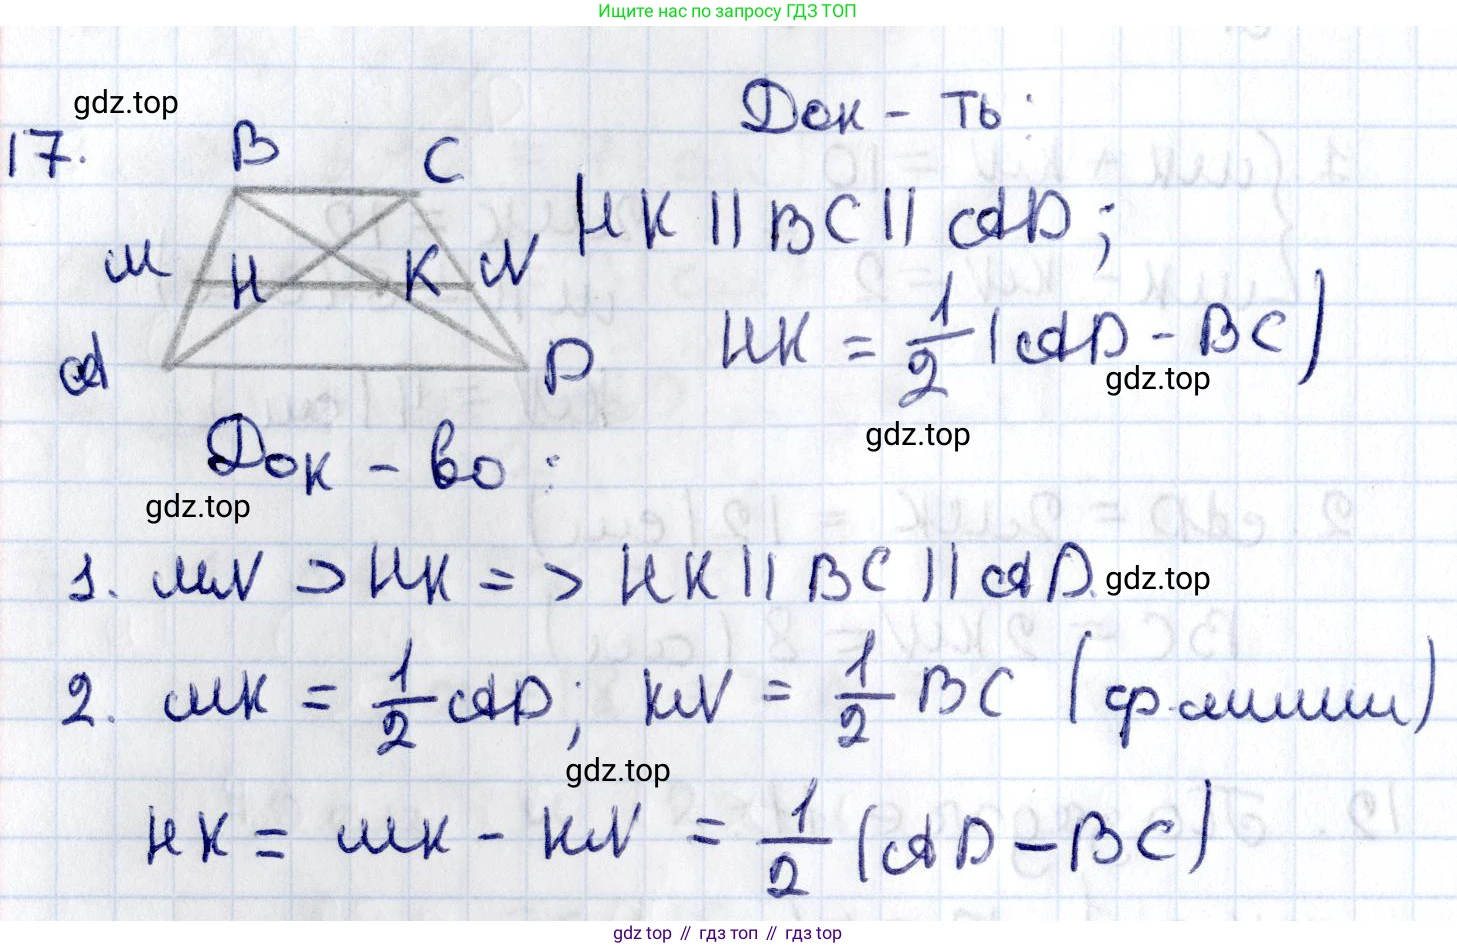 Ищите нас по запросу ГДЗ ТОП
gdz.top
Док - ть:
17.
B
C
HK || BC || AD;
M
H
K
N
HK = 1/2 (AD - BC)
gdz.top
A
D
gdz.top
Док - во:
gdz.top
1. MN ⊃ HK => HK || BC || AD.
gdz.top
2. MK = 1/2 AD; KN = 1/2 BC (ср.линии)
gdz.top
HK = MK - KN = 1/2 (AD - BC)
gdz.top // гдз топ // гдз.top